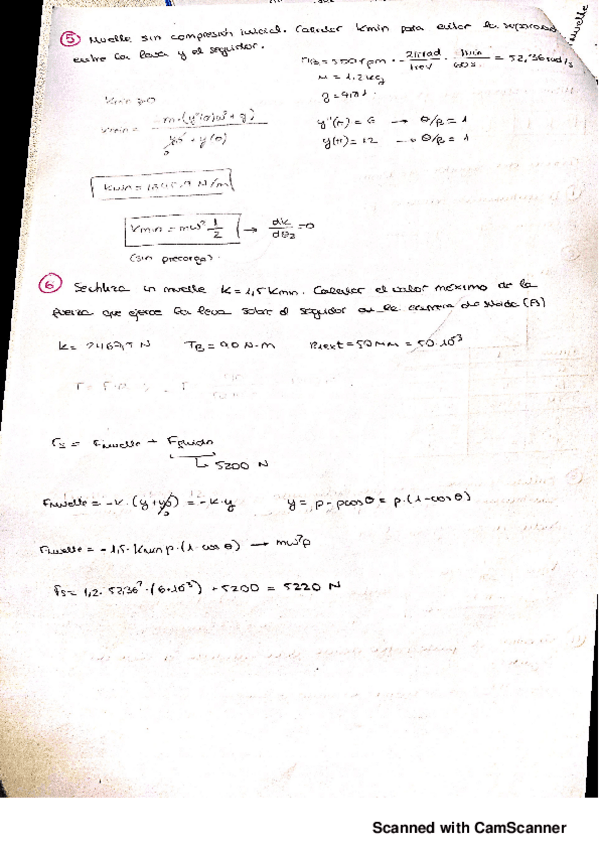 muelle
5 Muelle sin compresión inicial. Calcular Kmin para evitar la separación
entre la leva y el seguidor.
500 rpm · 2π rad / 1 rev · 1 min / 60 s = 52,36 rad/s
M = 1,2 kg
g = 9,81
Kmin
y''(π) = 6 → θ/β = 1
Kmin = m·(y''(θ)ω² + g) / y0 + y(θ)
y(π) = 12 → θ/β = 1
N/m
Kmin = mω² 1/2 → dk/dθ2 = 0
(sin precarga)
6 Se utiliza un muelle K = 1,5 Kmin. Calcular el valor máximo de la
fuerza que ejerce la leva sobre el seguidor en la carrera de subida (B)
N TB = 90 N·m = 50 mm = 50·10³
Fs = Fmuelle + Ffluido
↳ 5200 N
Fmuelle = -K·(y+y0) = -K·y y = ρ - ρcosθ = ρ·(1-cosθ)
Fmuelle = -1,5·Kmin ρ·(1-cosθ) → mω²ρ
Fs = 1,2·52,36²·(6·10³) + 5200 = 5220 N
Scanned with CamScanner